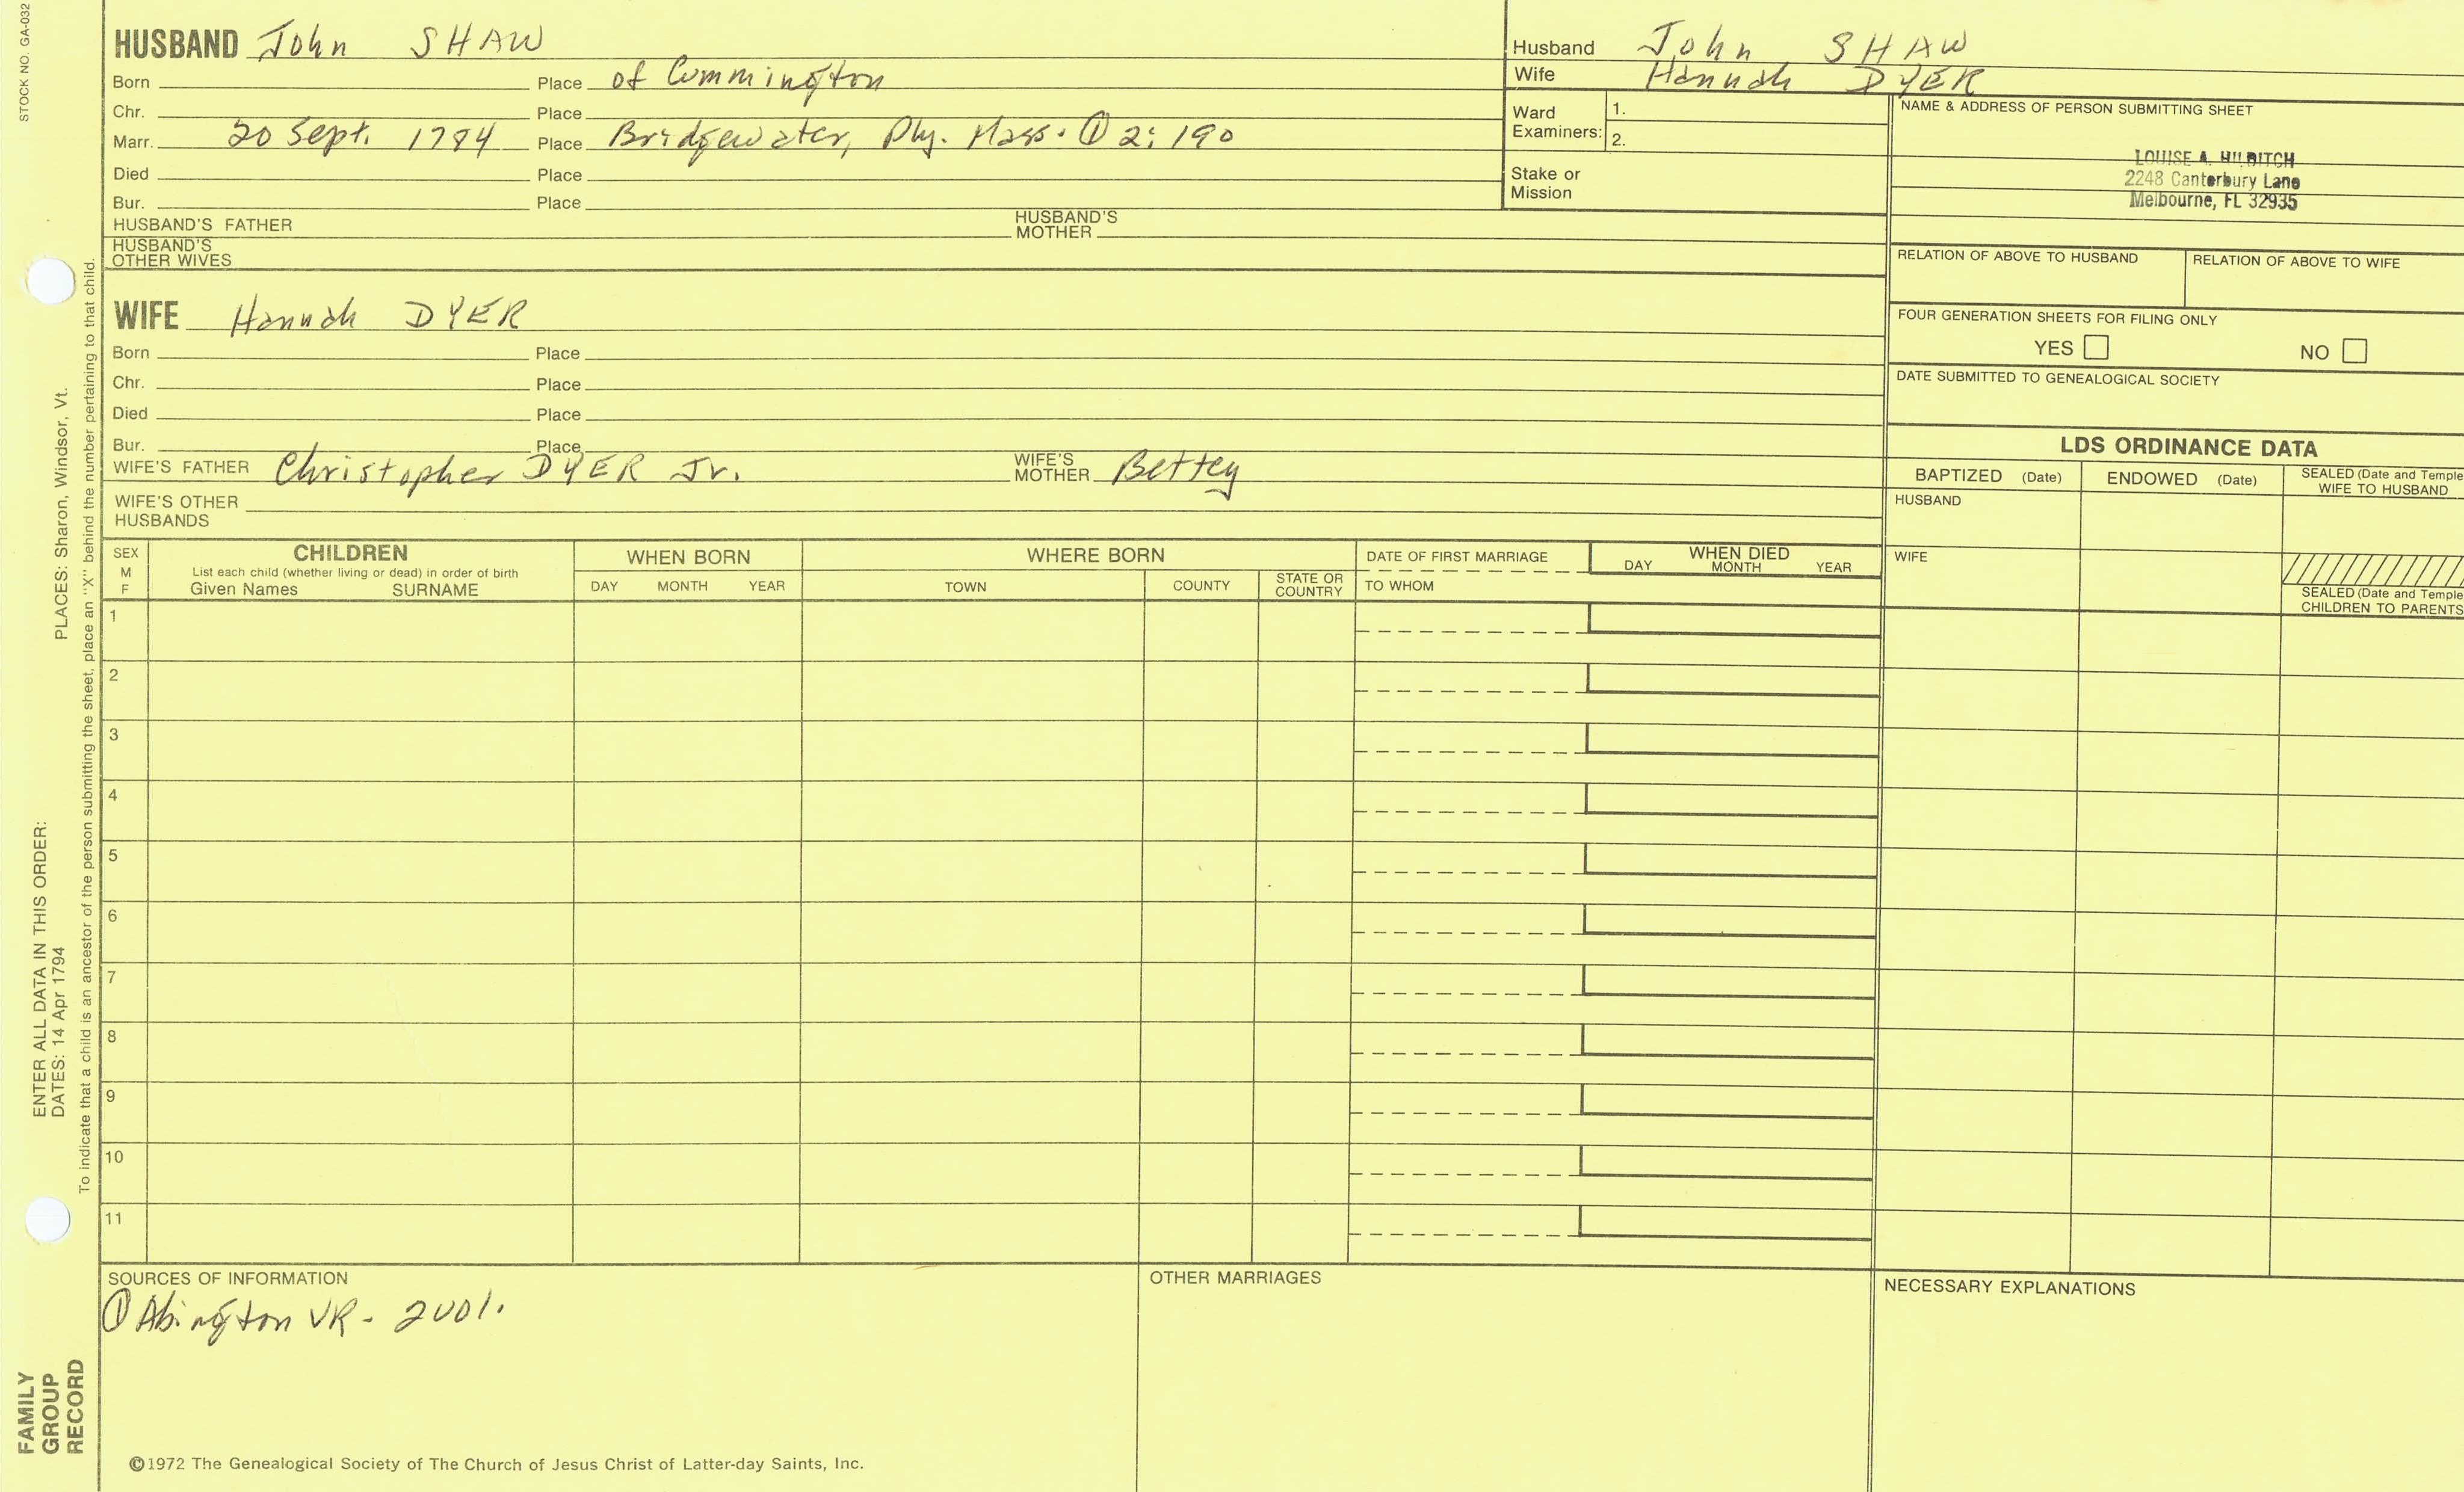 STOCK NO. GA-032
HUSBAND John SHAW
Born Place of Cummington
Chr. Place
Marr. 20 Sept. 1784 Place Bridgewater, Ply. Mass. ① 2: 190
Died Place
Bur. Place
HUSBAND'S FATHER HUSBAND'S MOTHER
HUSBAND'S OTHER WIVES
Husband John SHAW
Wife Hannah DYER
Ward Examiners: 1.
2.
Stake or Mission
NAME & ADDRESS OF PERSON SUBMITTING SHEET
LOUISE A. HILBITCH
2248 Canterbury Lane
Melbourne, FL 32935
RELATION OF ABOVE TO HUSBAND RELATION OF ABOVE TO WIFE
FOUR GENERATION SHEETS FOR FILING ONLY
YES NO
DATE SUBMITTED TO GENEALOGICAL SOCIETY
WIFE Hannah DYER
Born Place
Chr. Place
Died Place
Bur. Place
WIFE'S FATHER Christopher DYER Jr. WIFE'S MOTHER Bettey
WIFE'S OTHER HUSBANDS
LDS ORDINANCE DATA
BAPTIZED (Date) ENDOWED (Date) SEALED (Date and Temple
WIFE TO HUSBAND
HUSBAND
WIFE
SEALED (Date and Temple
CHILDREN TO PARENTS
SEX M F
CHILDREN
List each child (whether living or dead) in order of birth
Given Names SURNAME
WHEN BORN
DAY MONTH YEAR
WHERE BORN
TOWN COUNTY STATE OR COUNTRY
DATE OF FIRST MARRIAGE
TO WHOM
WHEN DIED
DAY MONTH YEAR
1
2
3
4
5
6
7
8
9
10
11
SOURCES OF INFORMATION
① Abington VR - 2001.
OTHER MARRIAGES
NECESSARY EXPLANATIONS
©1972 The Genealogical Society of The Church of Jesus Christ of Latter-day Saints, Inc.
FAMILY
GROUP
RECORD
ENTER ALL DATA IN THIS ORDER:
DATES: 14 Apr 1794 PLACES: Sharon, Windsor, Vt.
To indicate that a child is an ancestor of the person submitting the sheet, place an "X" behind the number pertaining to that child.